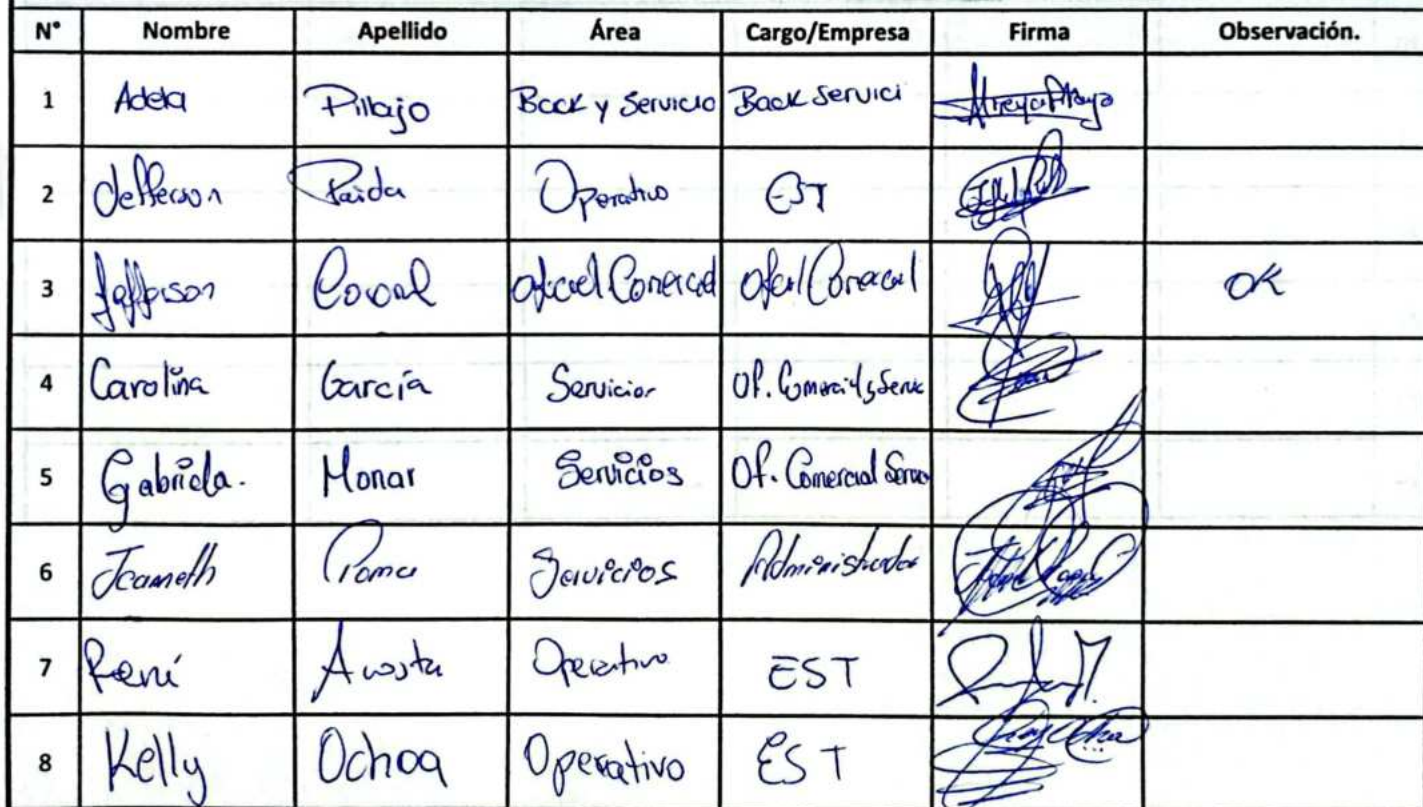 N° Nombre Apellido Área Cargo/Empresa Firma Observación.
1 Adela Pillajo Back y Servicio Back Servici
2 Jefferson Operativo EST
3 Jefferson Corral Oficial Comercial Ofcial Comercial OK
4 Carolina García Servicios Of. Comercial y Servic
5 Gabriela. Monar Servicios Of. Comercial Servic
6 Jeameth Poma Servicios Administrador
7 René Acosta Operativo EST
8 Kelly Ochoa Operativo EST